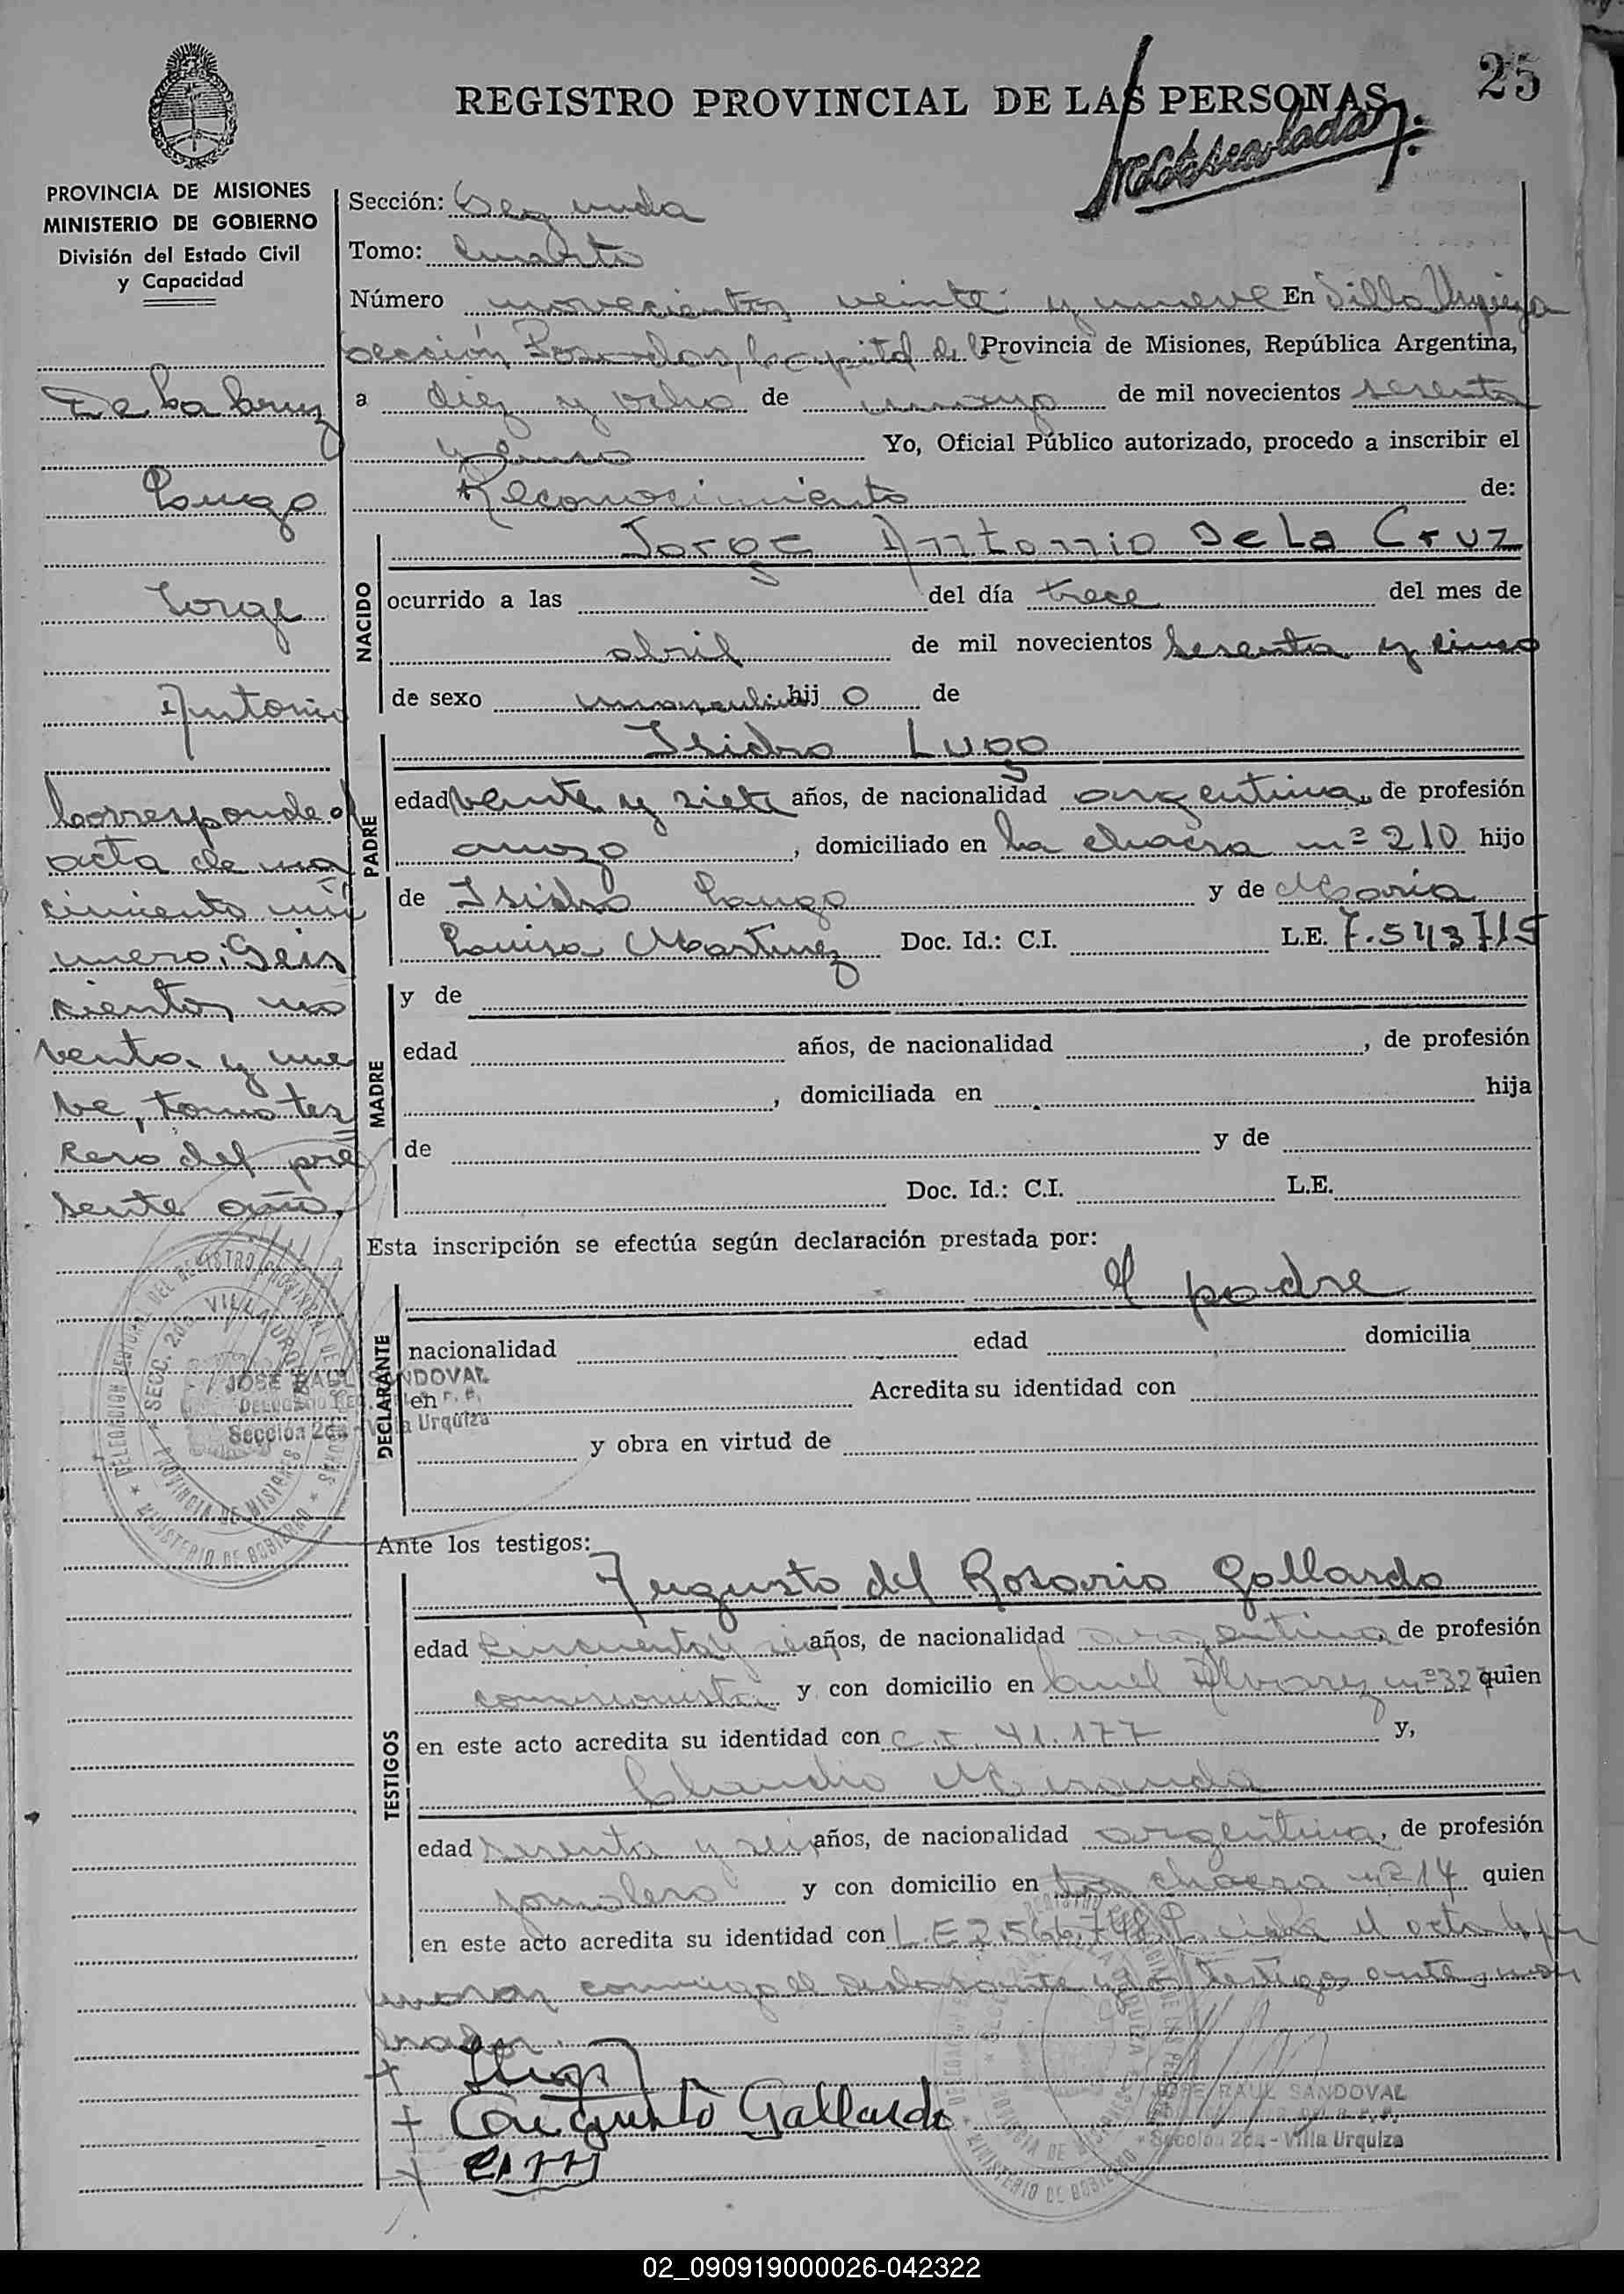 25
REGISTRO PROVINCIAL DE LAS PERSONAS
PROVINCIA DE MISIONES
MINISTERIO DE GOBIERNO
División del Estado Civil
y Capacidad
De La Cruz
Lugo
Jorge
Antonio
Corresponde al
acta de na
cimiento nú
mero: Seis
cientos no
venta y nue
ve, tomo ter
cero del pre
sente año.
DELEGACION SECCIONAL DEL REGISTRO PROVINCIAL DE LAS PERSONAS
SECC. 2da VILLA URQUIZA
PROVINCIA DE MISIONES
MINISTERIO DE GOBIERNO
JOSE RAUL SANDOVAL
Sección 2da - Villa Urquiza
Sección: Segunda
Tomo: Cuarto
Número novecientos veinte y nueve En Villa Urquiza
sección Posadas, Capital de la Provincia de Misiones, República Argentina,
a diez y ocho de mayo de mil novecientos sesenta
y cinco Yo, Oficial Público autorizado, procedo a inscribir el
Reconocimiento de:
NACIDO
Jorge Antonio De La Cruz
ocurrido a las del día trece del mes de
abril de mil novecientos sesenta y cinco
de sexo masculino hij o de
PADRE
Isidro Lugo
edad veinte y siete años, de nacionalidad argentina, de profesión
, domiciliado en la chacra nº 210 hijo
de Isidro Lugo y de María
Luisa Martinez Doc. Id.: C.I. L.E. 7.543715
MADRE
y de
edad años, de nacionalidad , de profesión
, domiciliada en hija
de y de
Doc. Id.: C.I. L.E.
Esta inscripción se efectúa según declaración prestada por:
DECLARANTE
el padre
nacionalidad edad domicilia
en Acredita su identidad con
y obra en virtud de
Ante los testigos:
TESTIGOS
Augusto del Rosario Gallardo
edad cincuenta y seis años, de nacionalidad argentina, de profesión
comisionista y con domicilio en Alvarez nº 32 quien
en este acto acredita su identidad con C.I. 41.177 y,
Claudio Miranda
edad sesenta y seis años, de nacionalidad argentina, de profesión
jornalero y con domicilio en la chacra nº 14 quien
en este acto acredita su identidad con L.E 2.566.748. Leida el acta la fir
maron conmigo el declarante y los testigos ante nom
brados.
Augusto Gallardo
JOSE RAUL SANDOVAL
Sección 2da - Villa Urquiza
02_090919000026-042322